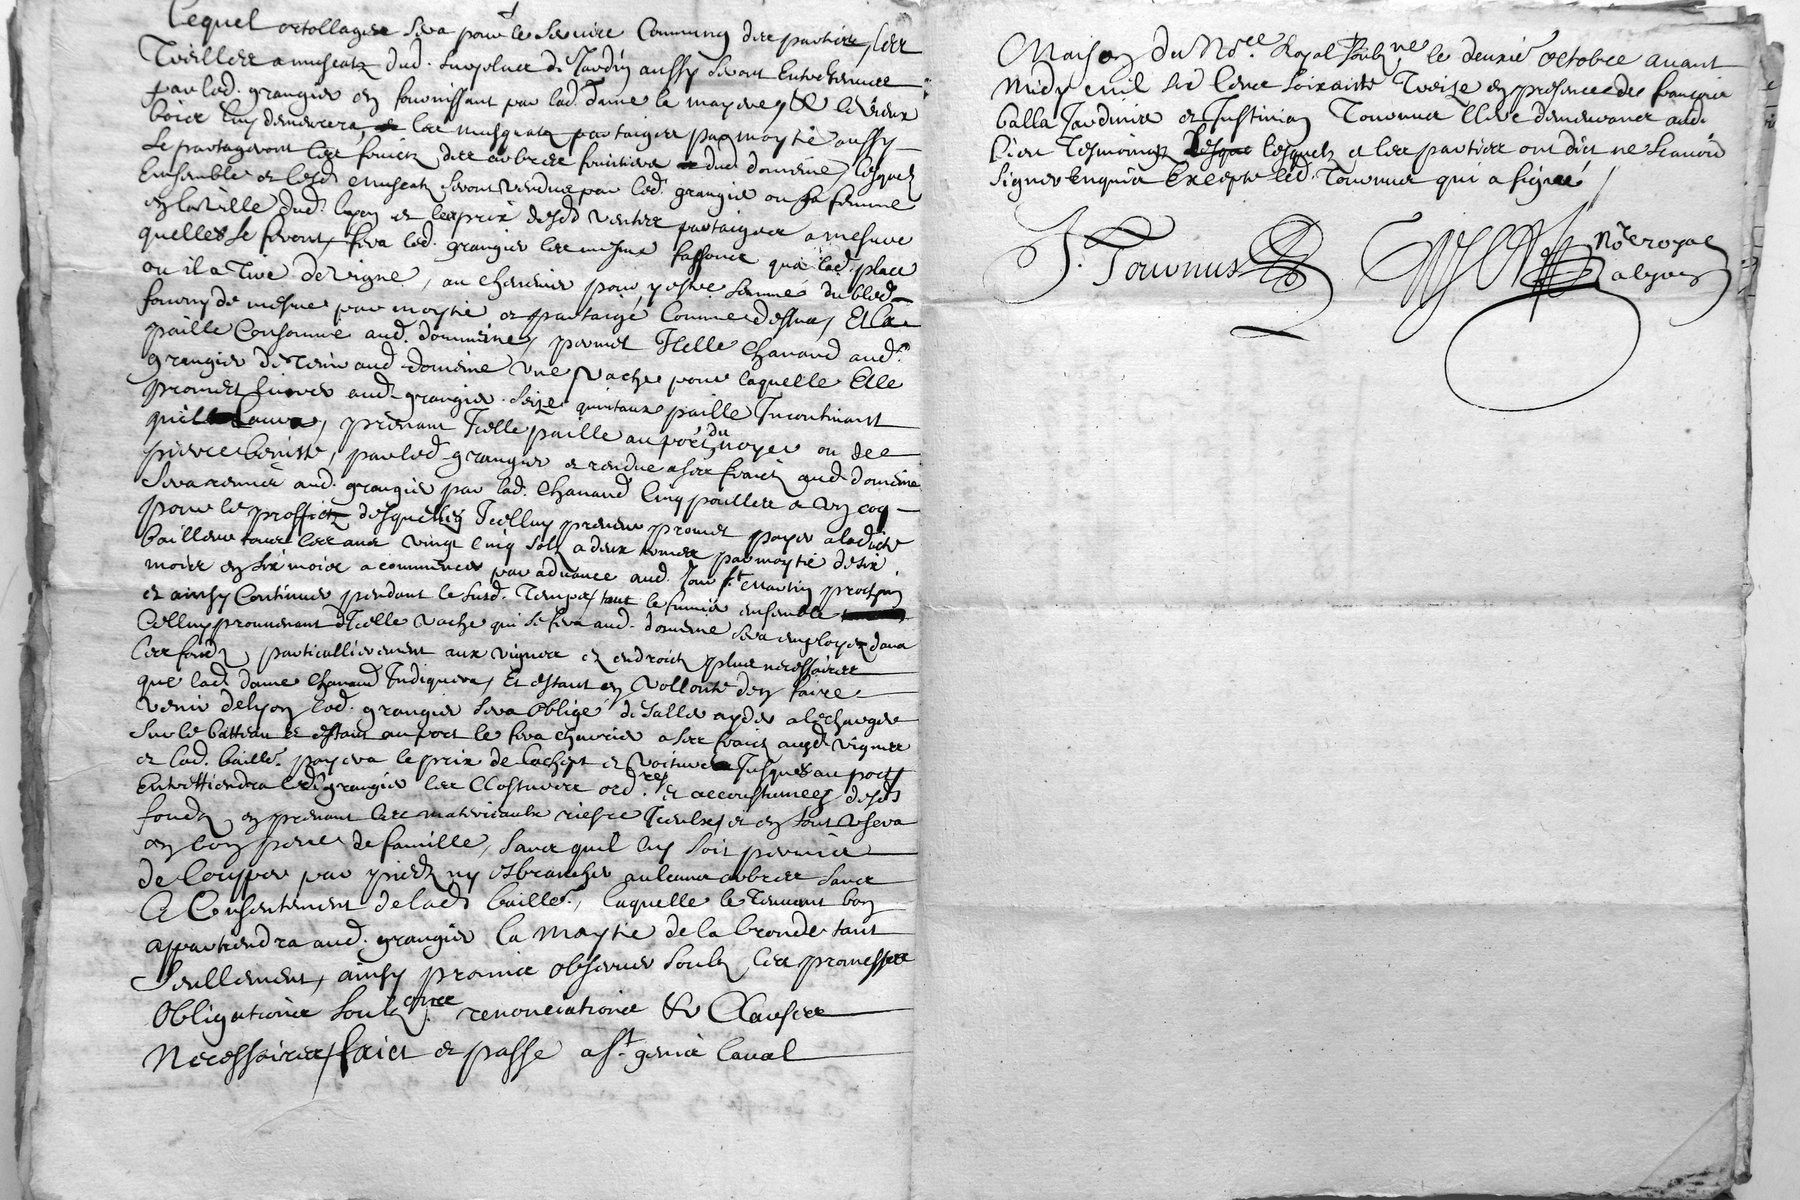 Lequel ortollage sera pour le service Commung des parties, les
Treillies a muscatz dud. Surplace di Jardin aussy seront Entretenues
par led. grangier en fournissant par lad. dame le mayere, & le vieux
bois luy demeurera, les musquatz partaiges par moytié aussy
Se partageront les fruictz des arbres fruitiers dud domeine, lesquelz
Ensemble et lesd muscatz seront vendus par led. grangier ou sa femme
en la ville dud. lyon et les prix desd ventes partaiges a mesure
quelles se feront, fera led. grangier les mesme fassons que lad. place
ou il a Tiré de vigne, au chenevier pour y estre semmé du bled
fourny de mesme par moytié et partaigé Comme dessus, Et la
paille Consommé aud. dommeine, permet Icelle Chanand aud.
grangier de Tenir aud domeine une vache pour laquelle Elle
promect livrer aud. grangier seize quintaux paille Incontinant
quil laura, prenant Icelle paille au port du noyer ou de
pierre benitte, par led. grangier et rendue a ses fraicts aud domeine
Sera remis aud. grangier par lad. Chanand Cinq poulles & un coq
pour les profficts desquelles Icelluy preneur promet payer a ladicte
bailleure tous les ans vingt cinq solz a deux termes par moytié de six
mois en six mois a commencer par advance aud. Jour St. Martin prochain
et ainsy Continuer pendant le susd. Temps, tout le fumier ensemble
Celluy prouvenant dIcelle vache qui se fera aud. domeine sera employé dans
les fondz, particullierement aux vignes et endroictz plus necessaires
que lad. dame Chanand Indiquera, Et estant en vollonté den faire
venir de lyon led. grangier sera obligé de laller ayder a le charger
Sur le batteau et estant au port le fera charrier a ses fraicts ausd. vignes
et lad. baille.r payera le prix de lachept et voiture Jusques au port
Entretiendra led. grangier les Clostures ord.res et accoustumees desd
fondz, en prenant les materiaulx riesre Iceulx, et en tout usera
en bon pere de famille, sans quil luy soit permis
de Coupper par pied ny esbrancher aulcuns arbres sans
le Consentement de lad. baille.r, laquelle le Tenant bon
appartiendra aud. grangier la moytié de la bronde tant
Seullement, ainsy promis observer soubz les promesses
Obligations soubz.ons renonciations & Clauses
Necessaires, faict et passé a St. genis laval
Maison du No.re Royal soubz.né le deuxie. octobre avant
Midy mil six Cens soixante Treize en presence de françois
balla Jardinier et Justinian Tournus Clerc demeurans aud.
lieu Tesmoingtz lesquelz et les parties ont dict ne scavoir
Signer Enquis Excepté led. Tournus qui a signé
J. Tournus
No.re royal
a lyon